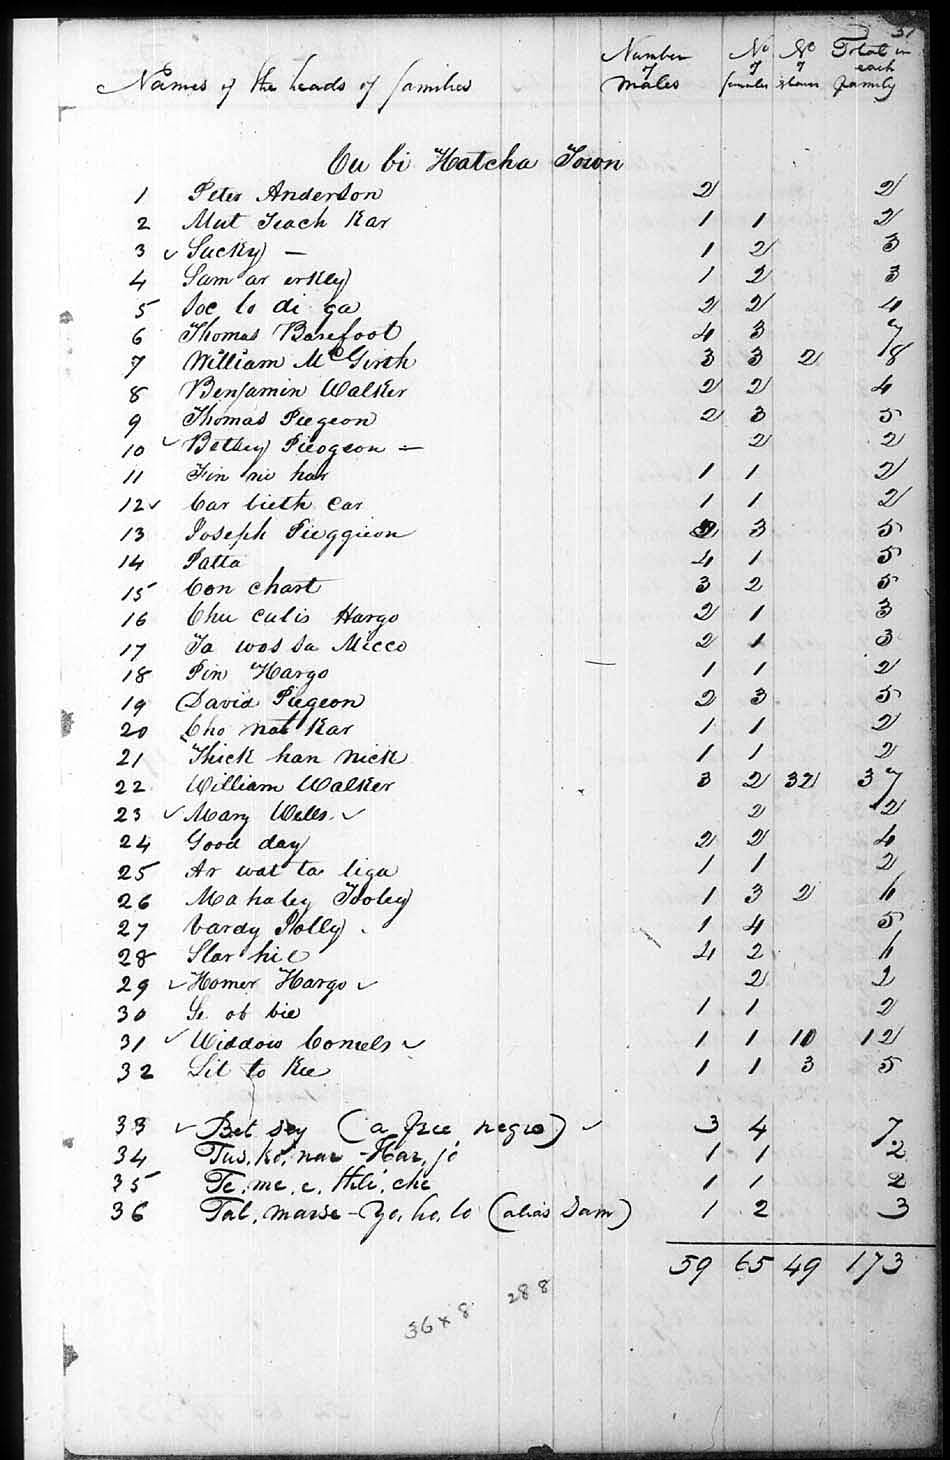 37
Names of the heads of families Number of Males No of females No of slaves Total in each family
Cu bi Hatcha Town
1 Peter Anderson 2 2
2 Mut Teach Kar 1 1 2
3 Sucky — 1 2 3
4 Sam ar erkley 1 2 3
5 Soc lo di ga 2 2 4
6 Thomas Barefoot 4 3 7
7 William McGirth 3 3 2 8
8 Benjamin Walker 2 2 4
9 Thomas Piegeon 2 3 5
10 Betsey Pieogeon — 2 2
11 Fin ni har 1 1 2
12 Car bieth Car 1 1 2
13 Joseph Pieggieon 2 3 5
14 Patta 4 1 5
15 Con chart 3 2 5
16 Chu culis Hargo 2 1 3
17 Ta wos sa Micco 2 1 3
18 Pin Hargo 1 1 2
19 David Piegeon 2 3 5
20 Cho nat Kar 1 1 2
21 Thick han nick 1 1 2
22 William Walker 3 2 32 37
23 Mary Wells 2 2
24 Good day 2 2 4
25 Ar wat ta liga 1 1 2
26 Mahaley Tooley 1 3 2 6
27 Vardy Polly 1 4 5
28 Star hic 4 2 6
29 Homer Hargo 2 2
30 ob bie 1 1 2
31 Widdow Cornels 1 1 10 12
32 Sit to Kee 1 1 3 5
33 Bet sey (a free negro) 3 4 7
34 Tus, ko, nar - Har, jo 1 1 2
35 Te, me, e, thli, che 1 1 2
36 Tal, marse - Yo, ho, lo (alias Sam) 1 2 3
59 65 49 173
36 x 8 288